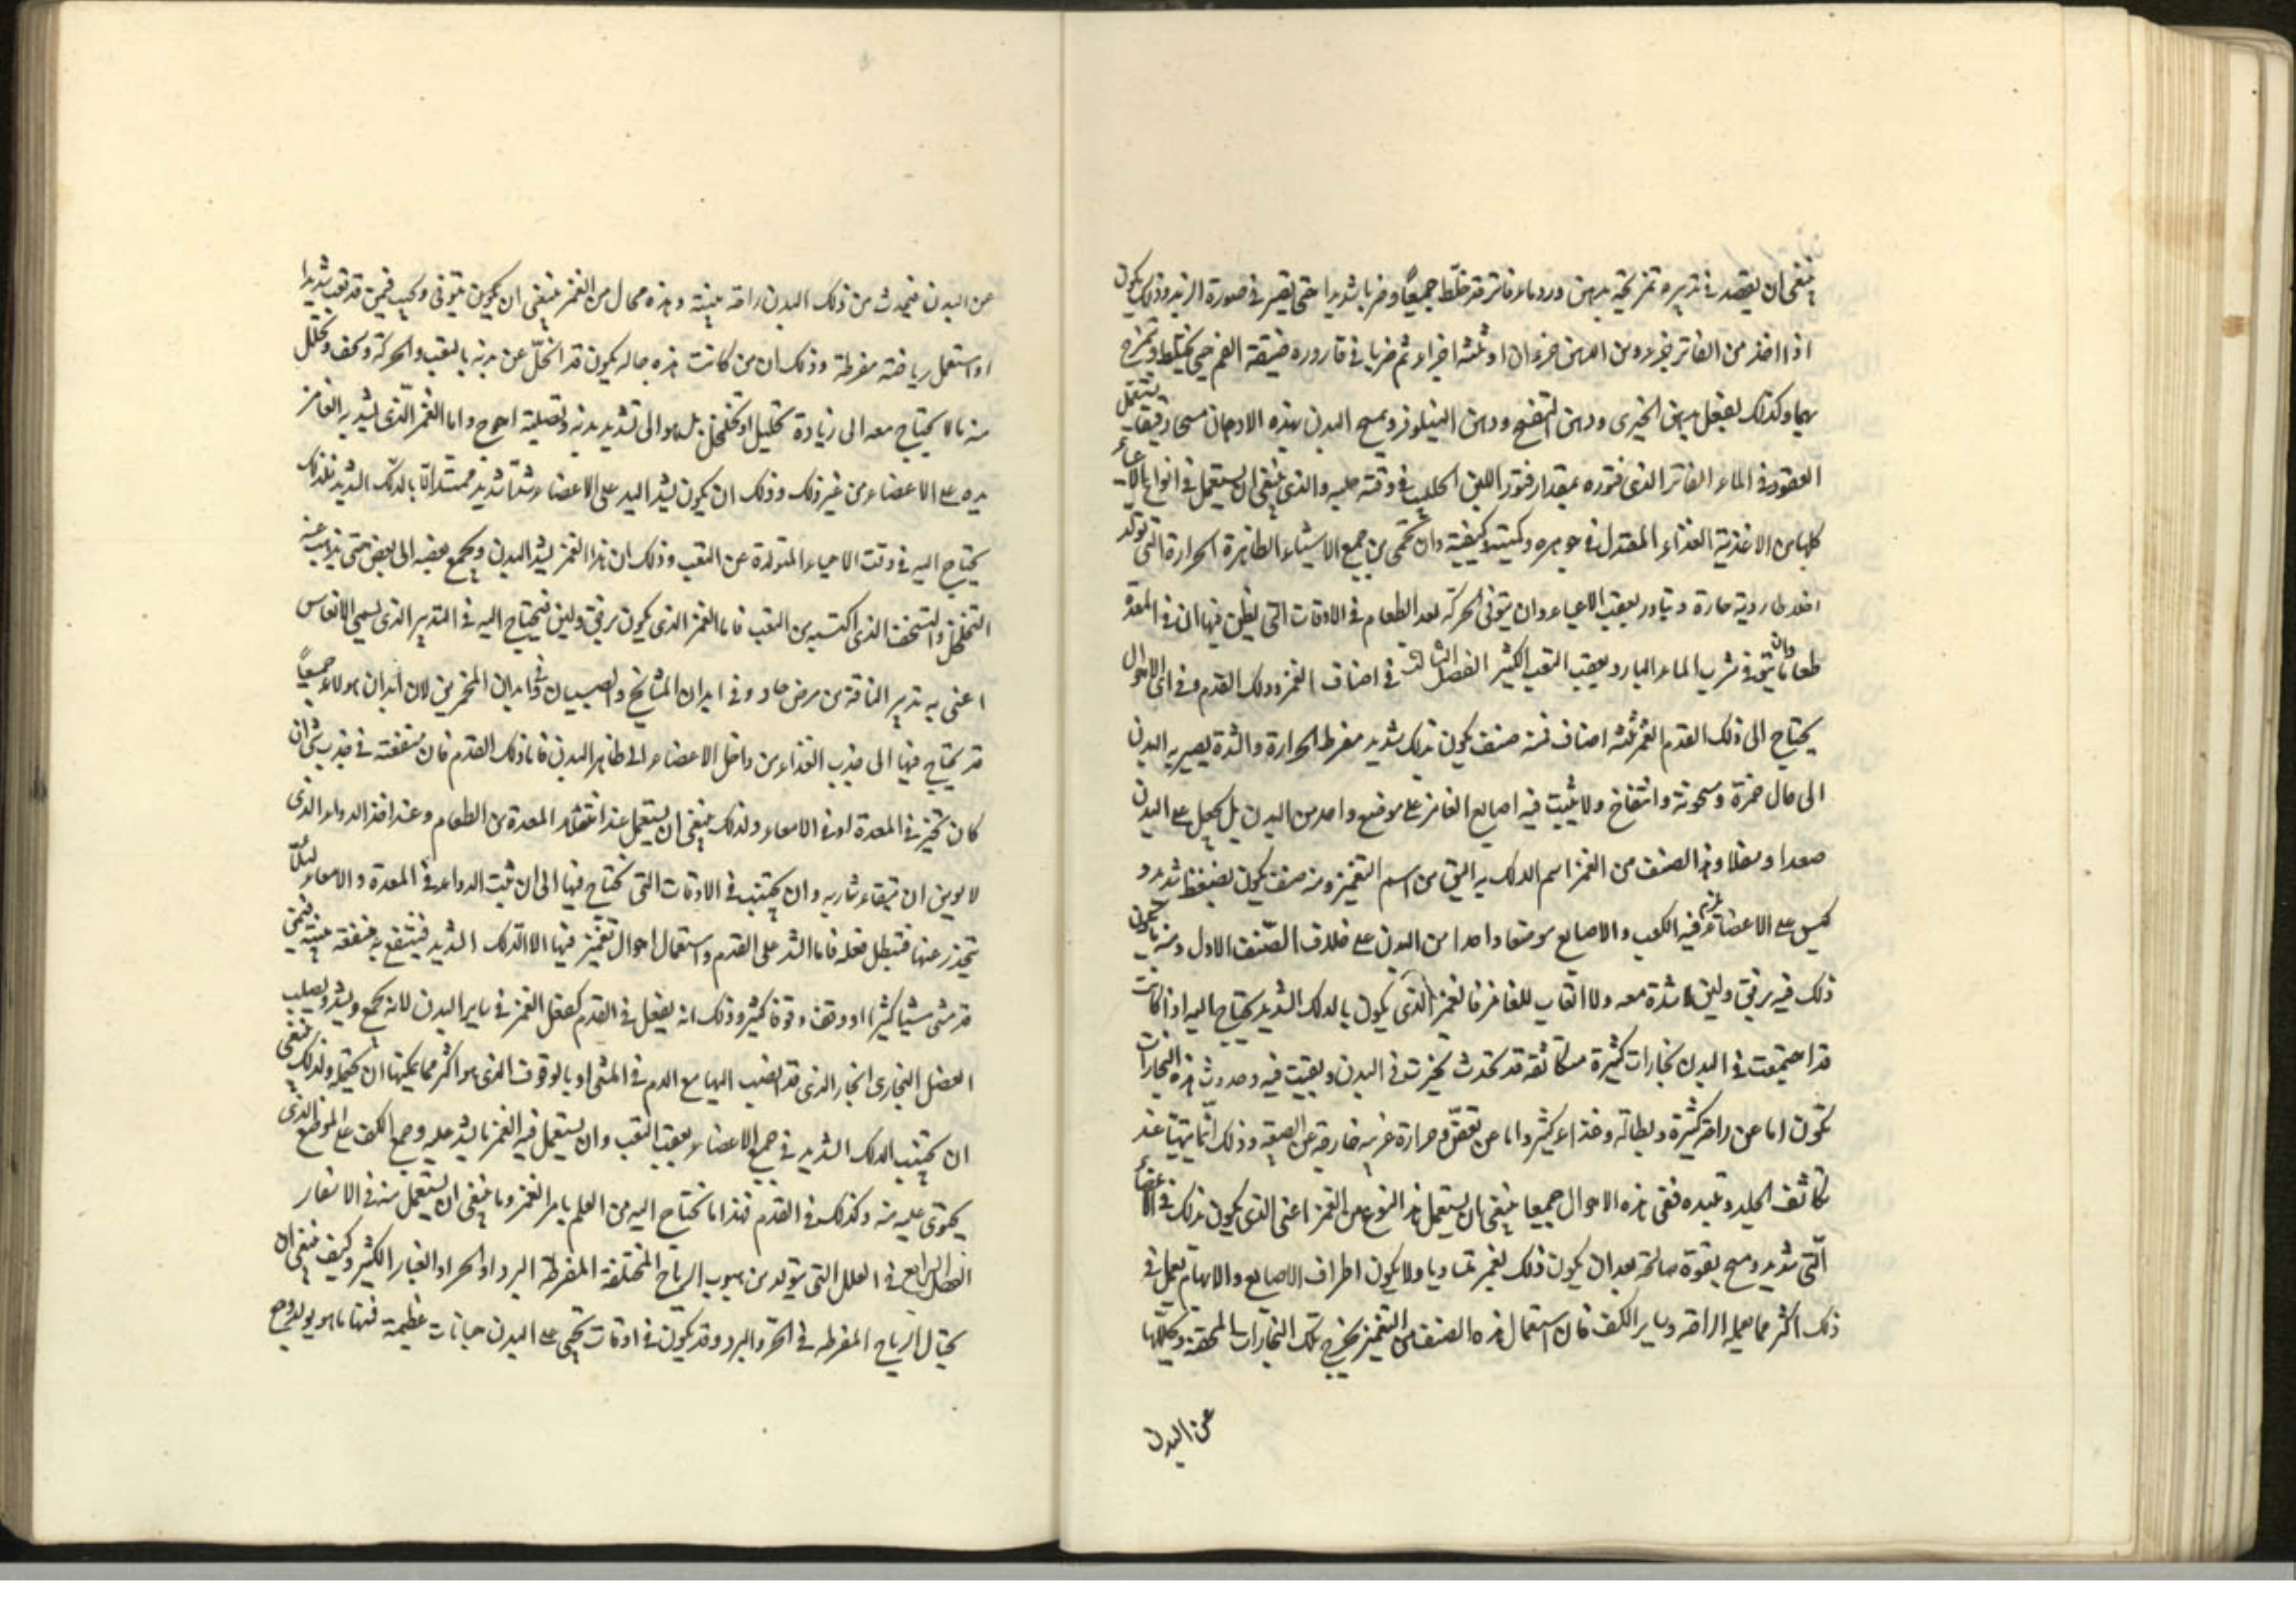 ينبغى ان يقصد فى تدبيره تمريخه بدهن ورد وماء فاتر قد خلّط جميعًا وضربا شديدا حتى يصير فى صورة الزبد وذلك يكون
اذا اخذ من الفاتر جزء ومن الدهن جزءان او ثلثة اجزاء ثم ضربا فى قارورة ضيقة الفم حتى يختلط
بها وكذلك يفعل بدهن الخيرى ودهن البنفسج ودهن النيلوفر ويمسح البدن بهذه الادهان مسحا رقيقا
القعود فى الماء الفاتر الذى فتوره بمقدار فتور اللبن الحليب فى وقت حلبه والذى ينبغى ان يستعمل فى انواع الاعياء
كلها من الاغذية الغذاء المعتدل فى جوهره وكميته وكيفيته وان تحمى من جميع الاشياء الظاهرة الحرارة التى تولد
اخلاطا ردية حارة بعقب الاعياء وان يتوقى الحركة بعد الطعام فى الاوقات التى يظن فيها ان فى المعدة
طعاما وان يتوقى شرب الماء البارد بعقب التعب الكثير الفصل الثالث فى اصناف الغمز ودلك القدم وفى اى الاحوال
يحتاج الى دلك القدم الغمز ثلثة اصناف فمنه صنف يكون بدلك شديد مفرط الحرارة والشدة يصير به البدن
الى حال حمرة وسخونة وانتفاخ ولا يثبت فيه اصابع الغامز على موضع واحد من البدن بل يحيل على البدن
صعدا وسفلا وهذا الصنف من الغمز اسم الدلك به اليق من اسم التغميز ومنه صنف يكون بضغط شديد و
كبس على الاعضاء يلزم فيه الكف والاصابع موضعا واحدا من البدن على خلاف الصنف الاول ومنه ما يكون
ذلك فيه برفق ولين لا شدة معه ولا اتعاب للغامز فالغمز الذى يكون بالدلك الشديد يحتاج اليه اذا كانت
قد اجتمعت فى البدن بخارات كثيرة متكاثفة قد تحدث فى البدن وبقيت فيه وحدوث هذه البخارات
تكون اما عن راحة كثيرة وبطالة وغذاء كثير واما عن تعفن وحرارة غريبة خارجة عن الطبيعة وذلك انما يتهيا عند
تكاثف الجلد وتلبده ففى هذه الاحوال جميعا ينبغى ان يستعمل هذا النوع من الغمز اعنى الذى يكون بدلك فى الاعضاء
التى شديد ومسح بقوة صالحة بعد ان يكون ذلك بغمز متساويا ولا يكون اطراف الاصابع والابهام يعمل فى
ذلك اكثر مما يعمله الراحة وساير الكف فان استعمال هذه الصنف من التغميز يخرج تلك البخارات المحتقنة ويحللها
عن البدن
عن البدن فيحدث من ذلك البدن راحة بينة وهذه حال من الغمز ينبغى ان يكون يتوقى ويجتنب فيمن قد تعب تعبا شديدا
او استعمل رياضة مفرطة وذلك ان من كانت هذه حاله يكون قد انحلّ عن بدنه بالتعب والحركة وتحلل
منه ما لا يحتاج معه الى زيادة تحليل او تخلخل بل هو الى تشديد بدنه وتصليبه احوج واما الغمز الّذى يشد به الغامز
يده على الاعضاء من غير دلك وذلك ان يكون يشد اليد على الاعضاء شدا شديدا بالدلك الشديد فلذلك
يحتاج اليه فى وقت الاعياء المتولدة عن التعب وذلك ان هذا الغمز يشد البدن ويجمع بعضه الى بعض حتى يذهب عنه
التخلخل والتسخف الذى اكتسبه من التعب فاما الغمز الذى يكون برفق ولين فيحتاج اليه فى التدبير الذى يسمى الانعاش
اعنى به تدبير الناقة من مرض حاد وفى ابدان المشايخ والصبيان وفى ابدان لان ابدان هولاء جميعًا
قد يحتاج فيها الى جذب الغذاء من داخل الاعضاء الى ظاهر البدن فاما دلك القدم فان منفعته فى جذب شئ ان
كان تحيز فى المعدة او فى الامعاء ولذلك ينبغى ان يستعمل عند انثقال المعدة من الطعام وعند اخذ الدواء الذى
لا يومن ان يتقيأه شاربه وان يجتنب فى الاوقات التى يحتاج فيها الى ان يثبت الدواء فى المعدة والامعاء لئلا
ينحدر عنها فيبطل فعله فاما الشد على القدم واستعمال احوال تغميز فيها الا الدلك الشديد فينتفع به منفعة بينة فيمن
قد مشى مشيا كثيرا او وقف وقوفا كثيرا وذلك انه يفعل فى القدم كفعل الغمز فى ساير البدن لانه يجمع ويشد ويصلب
الفضل البخارى الحار الذى قد انصب اليها مع الدم فى المشى او بالوقوف الذى هو اكثر مما يمكنها ان تحتمله ولذلك ينبغى
ان يجتنب الدلك الشديد فى جميع الاعضاء بعقب التعب وان يستعمل فيه الغمز بالشد عليه وجمع الكف على الموضع الذى
يحتوى عليه منه وكذلك فى القدم فهذا ما يحتاج اليه من العلم بامر الغمز وما ينبغى ان يستعمل منه فى الاسفار
الفصل الرابع فى العلل التى يتولد من هبوب الرياح المختلفة المفرطة البرد او الحر او الغبار الكثير وكيف ينبغى ان
يحتال الرياح المفرطة فى الحر والبرد وقد يكون فى اوقات تجنى على البدن جنايات عظيمة فمنها ما هو يولد وجع